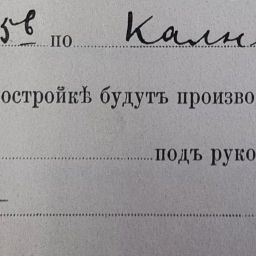 5в по Калн
остройкѣ будутъ произво
подъ руко